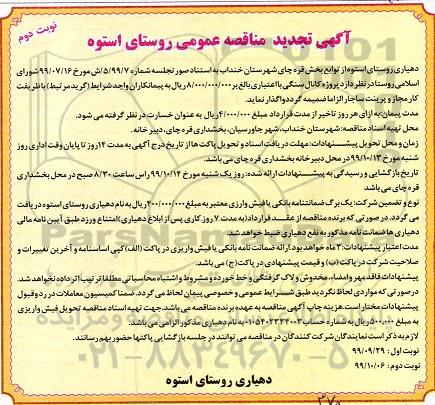 نوبت دوم
آگهی تجدید مناقصه عمومی روستای استوه
دهیاری روستای استوه از توابع بخش قره چای شهرستان خنداب به استناد صورتجلسه شماره ۵/۹۹/۷/ش مورخ ۹۹/۰۷/۱۶ شورای
اسلامی روستا در نظر دارد پروژه کانال سنگی با اعتباری بالغ بر ۸/۰۰۰/۰۰۰/۰۰۰ ریال به پیمانکاران واجد شرایط (گرید مرتبط) با ظرفیت
کار مجاز و پرینت ساجار الزاما ضمیمه گردد واگذار نماید.
مدت پیمان: به ازای هر روز تاخیر از مدت قرارداد مبلغ ۴/۰۰۰/۰۰۰ ریال به عنوان خسارت در نظر گرفته می شود.
محل تهیه اسناد مناقصه: شهرستان خنداب، شهر جاورسیان، بخشداری قره چای، دبیرخانه.
زمان و محل تحویل پیشنهادات: مهلت دریافت اسناد و تحویل پاکت ها از تاریخ درج آگهی به مدت ۱۴ روز تا پایان وقت اداری روز
شنبه مورخ ۹۹/۱۰/۱۳ در محل دبیرخانه بخشداری قره چای می باشد.
تاریخ بازگشایی و رسیدگی به پیشنهادات ارائه شده: روز یک شنبه مورخ ۹۹/۱۰/۱۴ راس ساعت ۸/۳۰ صبح در محل بخشداری
قره چای می باشد.
نوع و تضمین شرکت: یک برگ ضمانتنامه بانکی یا فیش واریزی معتبر به مبلغ ۴۰۰/۰۰۰/۰۰۰ ریال به نام دهیاری روستای استوه دریافت
می گردد. در صورتی که برنده مناقصه از عقد قرارداد (به مدت ۷ روز کاری پس از ابلاغ دهیاری) امتناع ورزد طبق آیین نامه مالی
دهیاری ها ضمانت نامه مذکور به نفع دهیاری ضبط خواهد شد.
مدت اعتبار پیشنهادات: ۳ ماه خواهد بود. ارائه ضمانت نامه بانکی یا فیش واریزی در پاکت (الف) کپی اساسنامه و آخرین تغییرات و
صلاحیت شرکت در پاکت (ب) و قیمت پیشنهادی در پاکت (ج) می باشد.
پیشنهادات فاقد مهر و امضاء، مخدوش و لاک گرفتگی و خط خورده و مشروط و اشتباه محاسباتی مطلقا ترتیب اثر داده نخواهد شد.
در صورتی که مواردی لحاظ نگردید طبق شرایط عمومی و خصوصی پیمان لحاظ می گردد. ضمنا کمیسیون معاملات در رد و قبول
پیشنهادات مختار است. هزینه چاپ آگهی مناقصه به عهده برنده مناقصه می باشد. جهت تهیه اسناد مناقصه تحویل فیش واریزی
به مبلغ ۵۰۰/۰۰۰ ریال به شماره حساب به نام دهیاری مذکور الزامی می باشد.
لازم به ذکر است نمایندگان شرکت کنندگان در مناقصه می توانند در جلسه بازگشایی پاکتها حضور بهم رسانند.
نوبت اول: ۹۹/۰۹/۲۹
نوبت دوم: ۹۹/۱۰/۰۶
دهیاری روستای استوه
۰۲۱-۸۸۳۴۹۶۷۰-۵